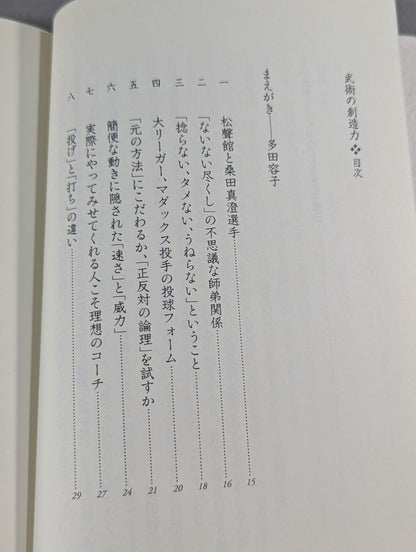 武術の創造力 ❖ 目次
まえがき――多田容子
一 松聲館と桑田真澄選手……15
二 「ないない尽くし」の不思議な師弟関係……16
三 「捻らない、タメない、うねらない」ということ……18
四 大リーガー、マダックス投手の投球フォーム……20
五 「元の方法」にこだわるか、「正反対の論理」を試すか……21
六 簡便な動きに隠された「速さ」と「威力」……24
七 実際にやってみせてくれる人こそ理想のコーチ……27
八 「投げ」と「打ち」の違い……29